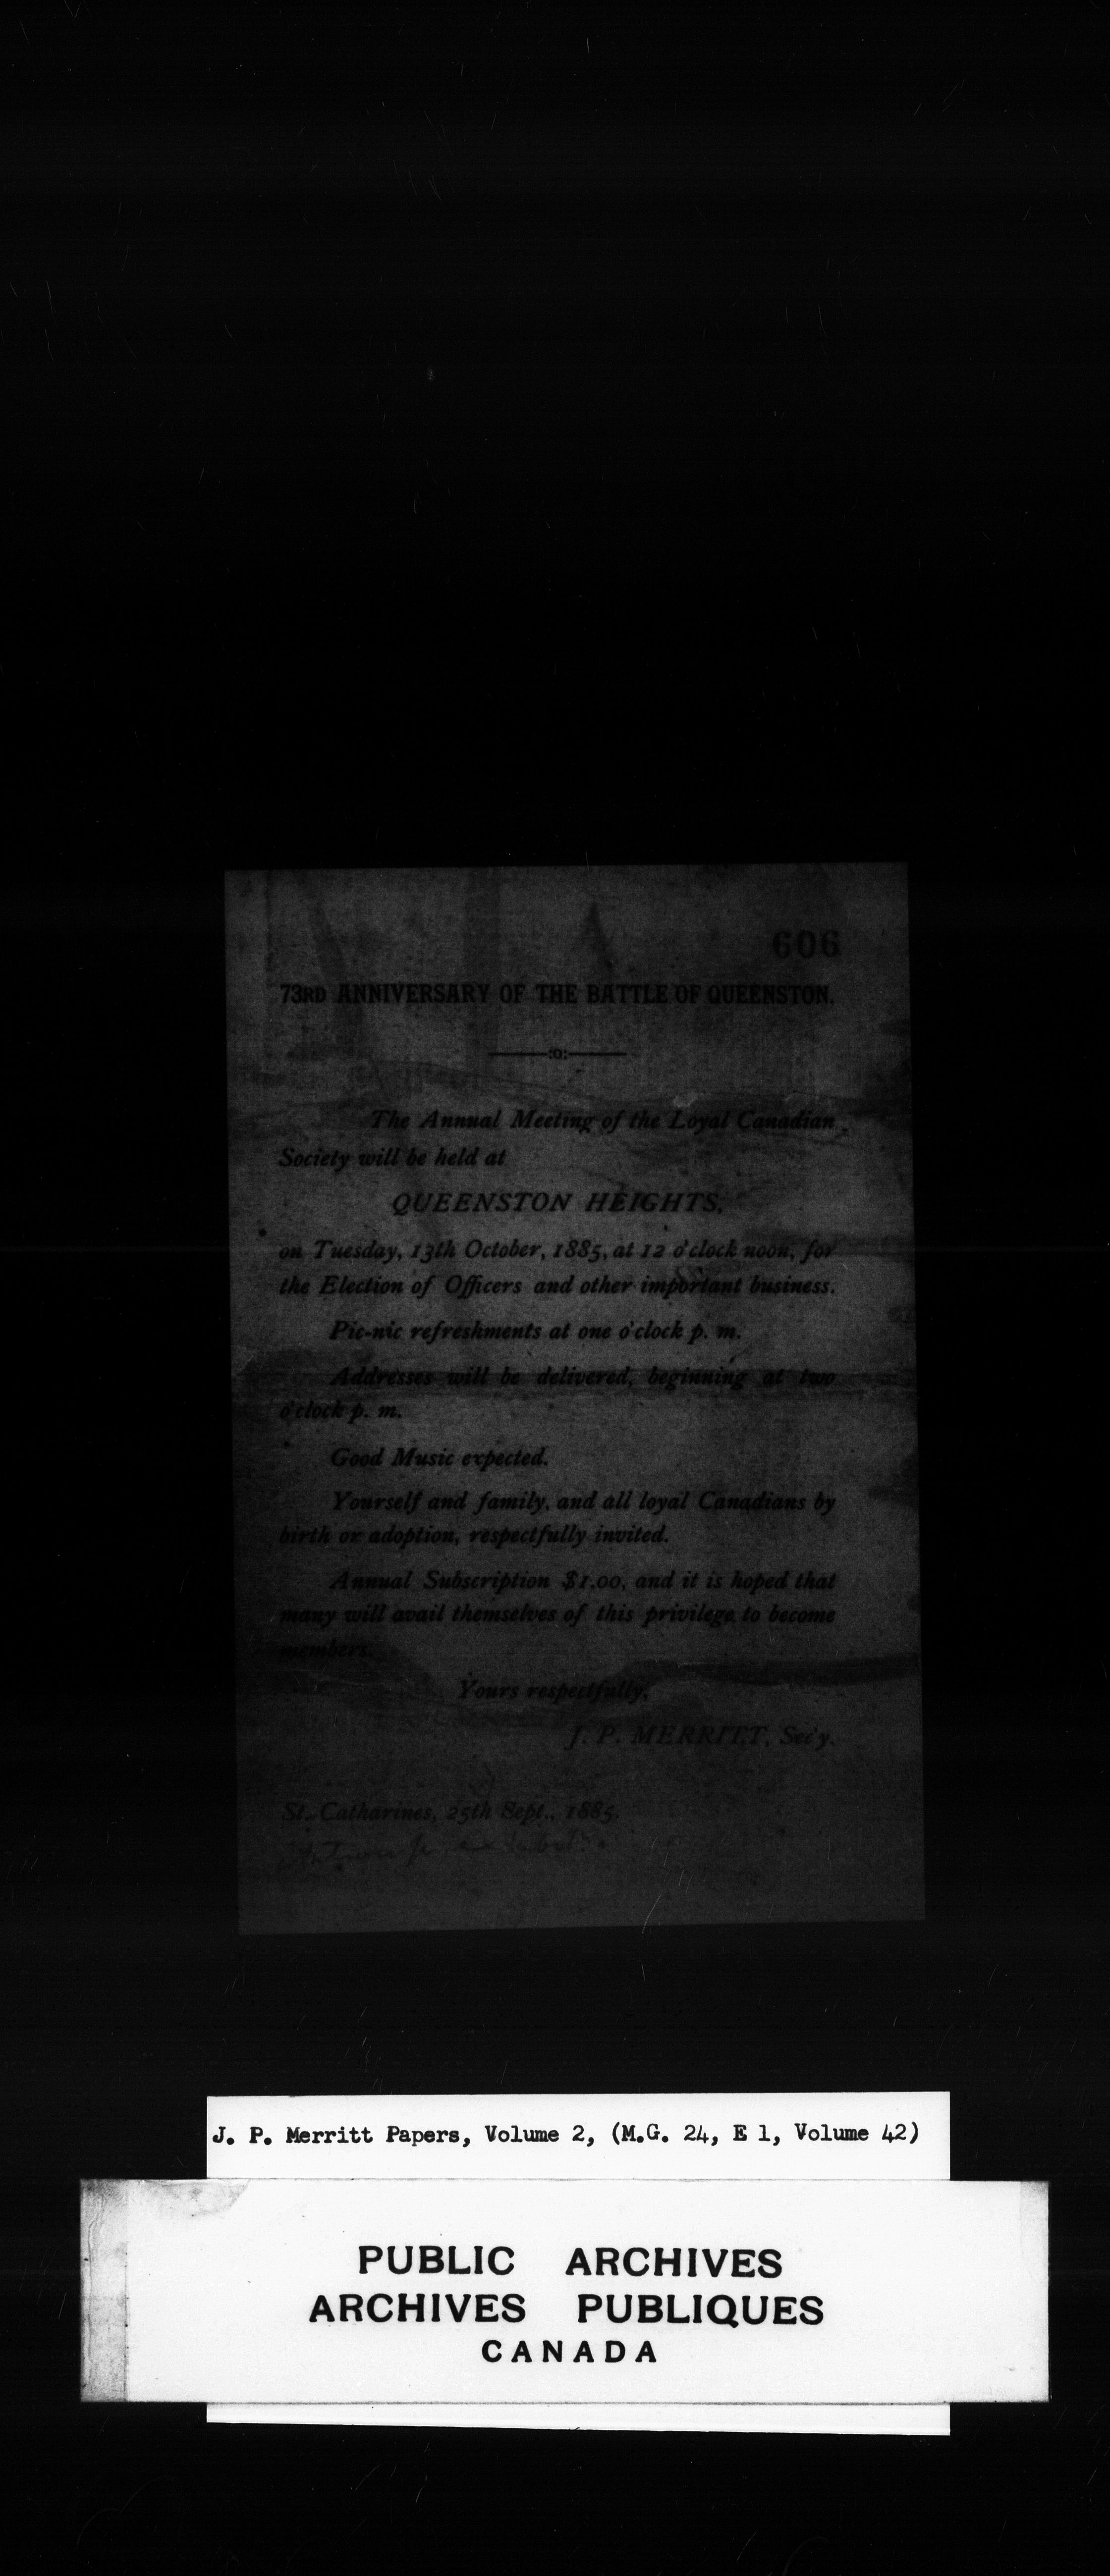 606
73RD ANNIVERSARY OF THE BATTLE OF QUEENSTON.
:o:
The Annual Meeting of the Loyal Canadian
Society will be held at
QUEENSTON HEIGHTS,
on Tuesday, 13th October, 1885, at 12 o'clock noon, for
the Election of Officers and other important business.
Pic-nic refreshments at one o'clock p. m.
Addresses will be delivered, beginning at two
o'clock p. m.
Good Music expected.
Yourself and family, and all loyal Canadians by
birth or adoption, respectfully invited.
Annual Subscription $1.00, and it is hoped that
many will avail themselves of this privilege to become
members.
Yours respectfully,
J. P. MERRITT, Sec'y.
St. Catharines, 25th Sept., 1885.
J. P. Merritt Papers, Volume 2, (M.G. 24, E 1, Volume 42)
PUBLIC ARCHIVES
ARCHIVES PUBLIQUES
CANADA